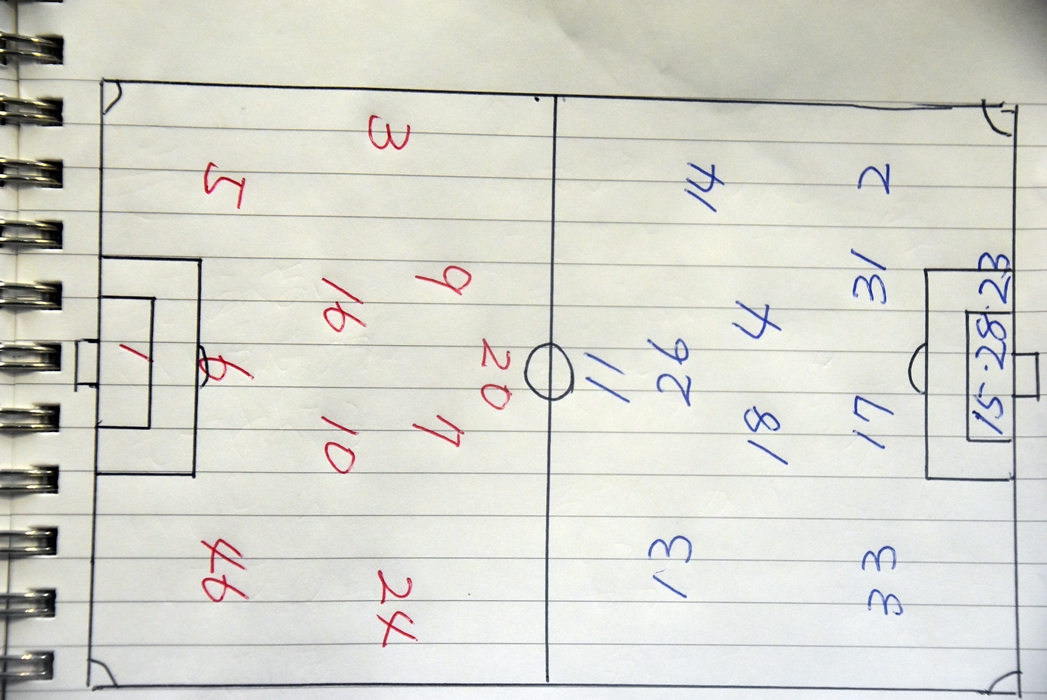 20
9 7
3 24
16 10
5 6 46
1
11
13 26 14
18 4
33 17 31 2
15·28·23